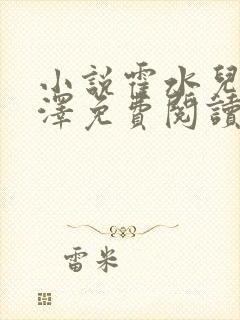 小說霍水兒
澤免費閱讀
雷米